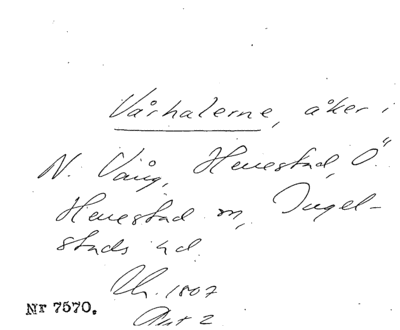 Vårhalerne, åker i
N. Vång, Henestad, Ö.
Henestad sn, Ingel-
stads hd.
Uh. 1807
Akt 2
Nr 7570.